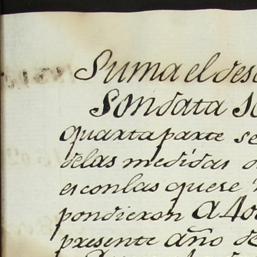 Suma el des
Sondata
quarta parte se
delas medidas
es con las que se
pondieron A 40
presente año de